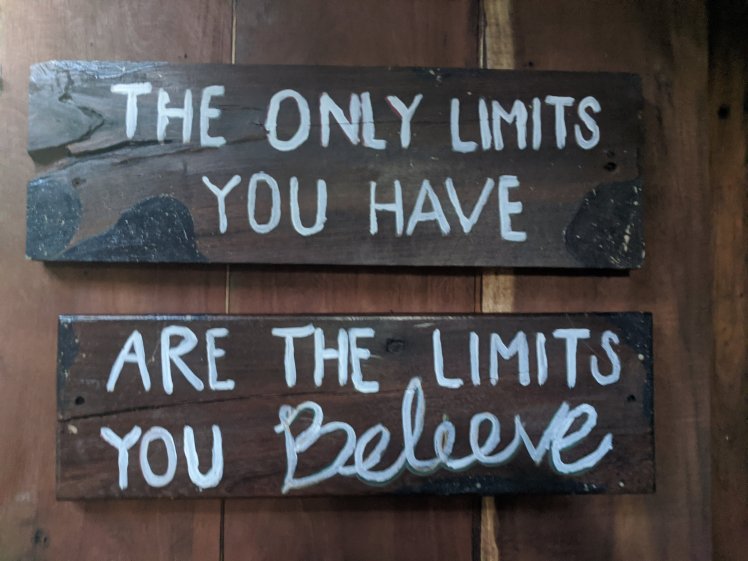 THE ONLY LIMITS
YOU HAVE
ARE THE LIMITS
YOU Beleeve